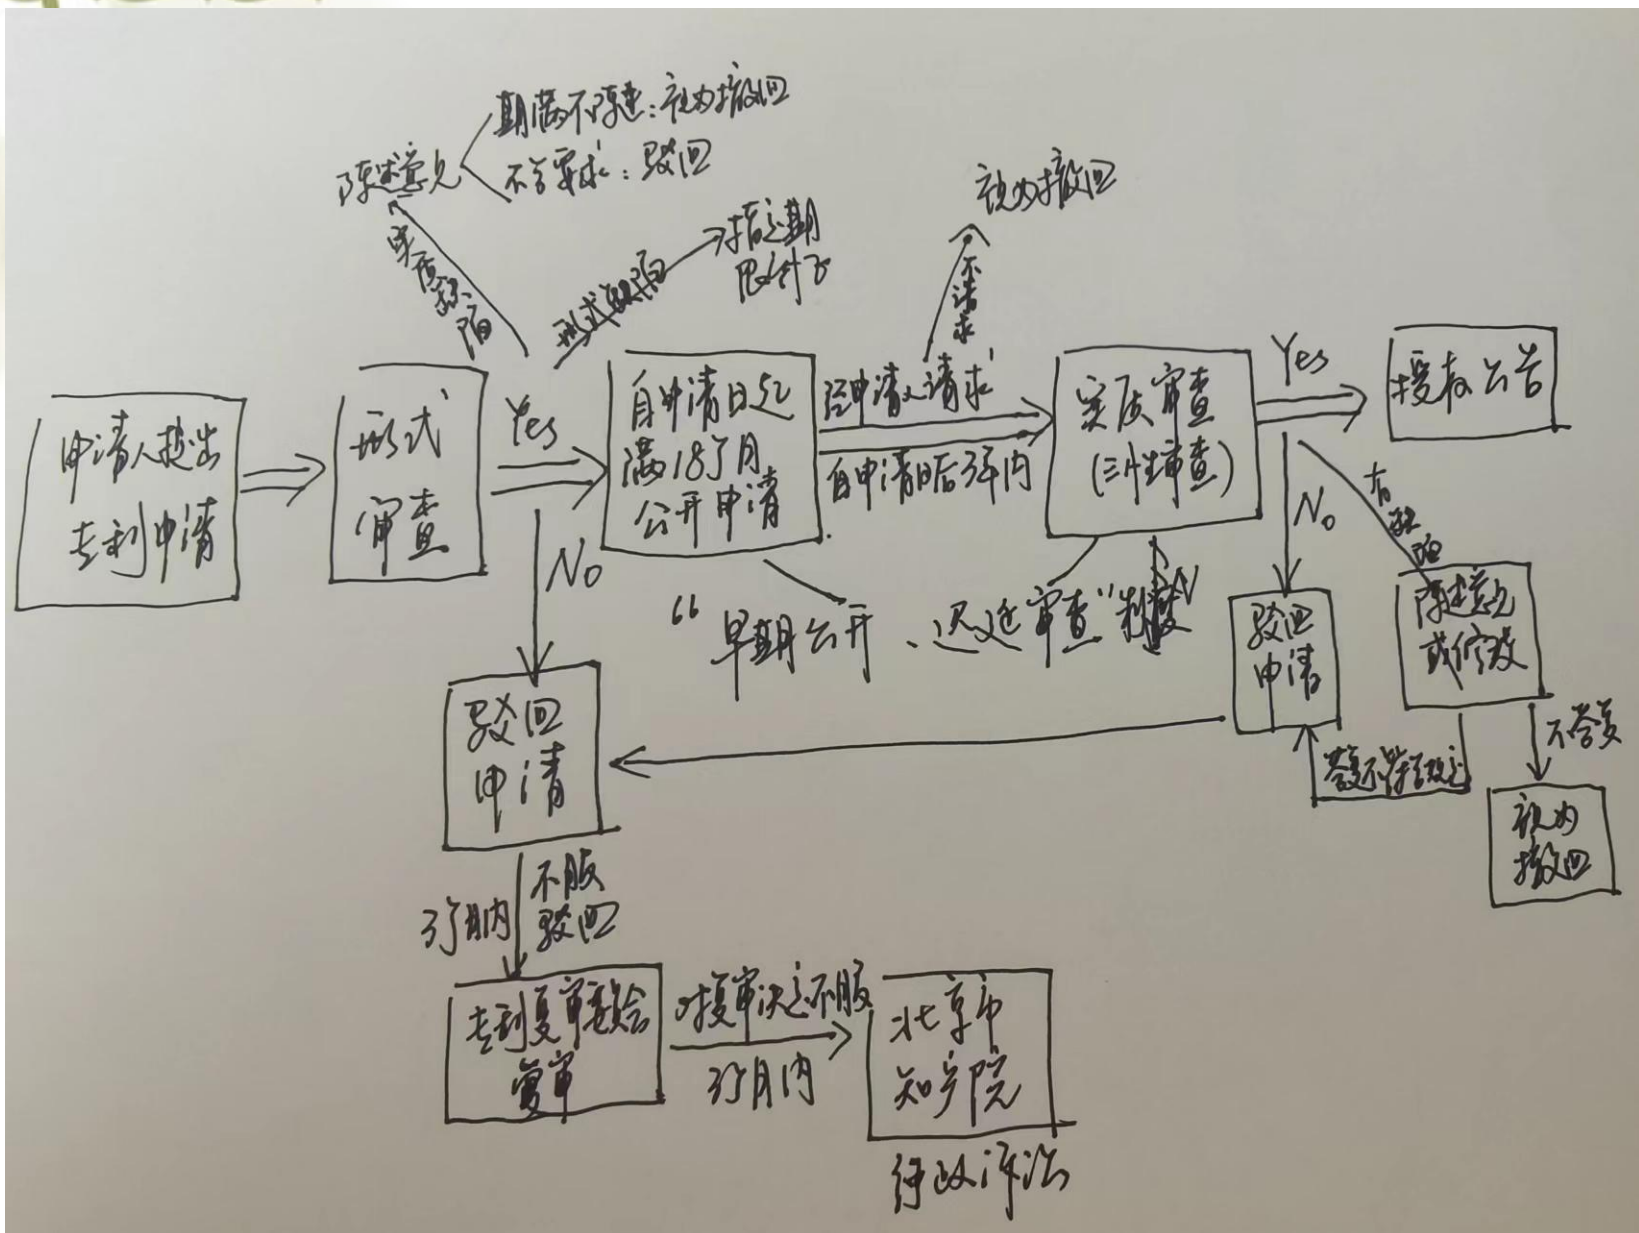 期满不陈述：视为撤回
陈述意见
不合要求：驳回
视为撤回
实质缺陷
形式缺陷
指定期
限补正
不请求
申请人提出
专利申请
形式
审查
Yes
自申请日起
满18个月
公开申请
经申请人请求
自申请日后3年内
实质审查
(三性审查)
Yes
授权公告
No
No
有缺陷
“早期公开、迟延审查”制度
驳回
申请
陈述意见
或修改
驳回
申请
答复不符合规定
不答复
视为
撤回
3个月内
不服
驳回
专利复审委员会
复审
对复审决定不服
3个月内
北京市
知产院
行政诉讼